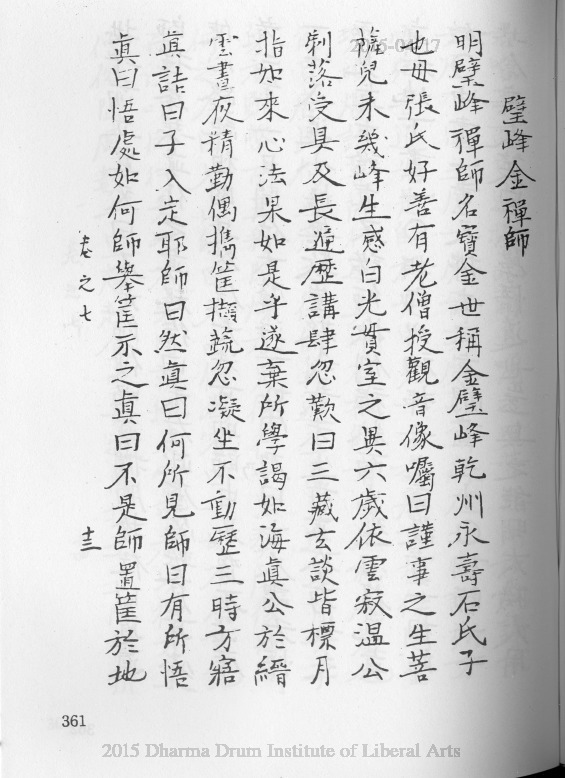 璧峰金禪師
明璧峰禪師名寶金世稱金璧峰乾州永壽石氏子
也母張氏好善有老僧授觀音像囑曰謹事之生菩
薩兒未幾峰生感白光貫室之異六歲依雲寂溫公
剃落受具及長遍歷講肆忽歎曰三藏玄談皆標月
指如來心法果如是乎遂棄所學謁如海真公於縉
雲晝夜精勤偶攜筐擷蔬忽凝坐不動歷三時方寤
真詰曰子入定耶師曰然真曰何所見師曰有所悟
真曰悟處如何師舉筐示之真曰不是師置筐於地
卷之七
十三
361
2015 Dharma Drum Institute of Liberal Arts